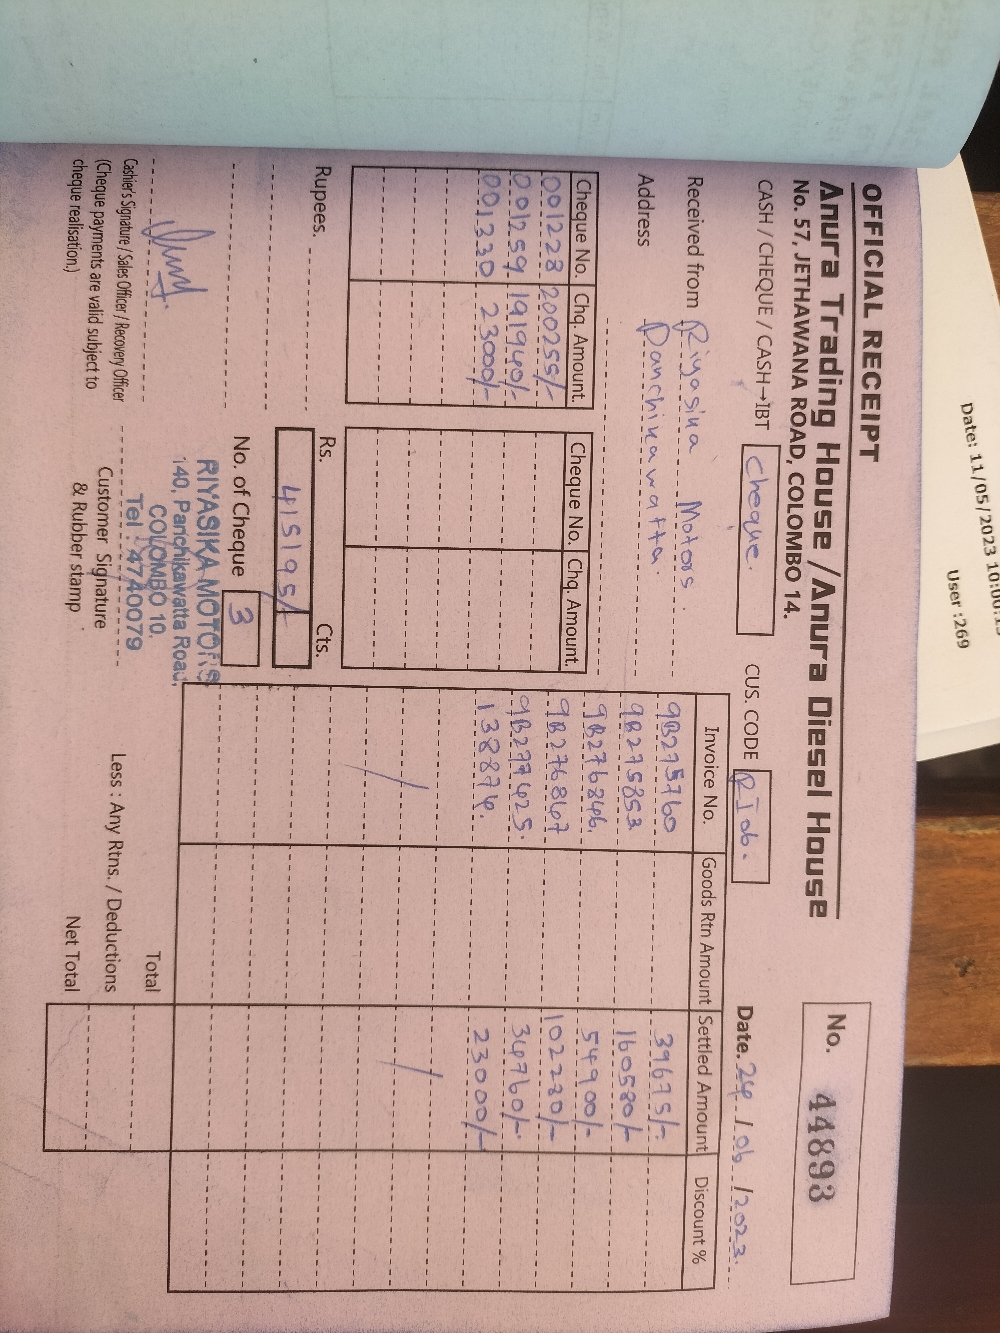 Date: 11/05/2023 10:00:15
User :269
OFFICIAL RECEIPT
Anura Trading House / Anura Diesel House
No. 57, JETHAWANA ROAD, COLOMBO 14.
No. 44893
CASH / CHEQUE / CASH→IBT Cheque.
CUS. CODE RI06.
Date. 24 / 06 / 2023.
Received from Riyasika Motors.
Address Panchikawatta.
Cheque No. Chq. Amount.
001228 200255/-
001259 191940/-
001330 23000/-
Cheque No. Chq. Amount.
Invoice No. Goods Rtn Amount Settled Amount Discount %
9B275760 39675/-
9B275853 160580/-
9B276846 54900/-
9B276847 102280/-
9B277425. 34760/-
138874. 23000/-
Rupees.
Rs. Cts.
415195/-
No. of Cheque 3
RIYASIKA MOTORS
140, Panchikawatta Road,
COLOMBO 10.
Tel : 4740079
Cashier's Signature / Sales Officer / Recovery Officer
(Cheque payments are valid subject to
cheque realisation.)
Customer Signature
& Rubber stamp
Total
Less : Any Rtns. / Deductions
Net Total